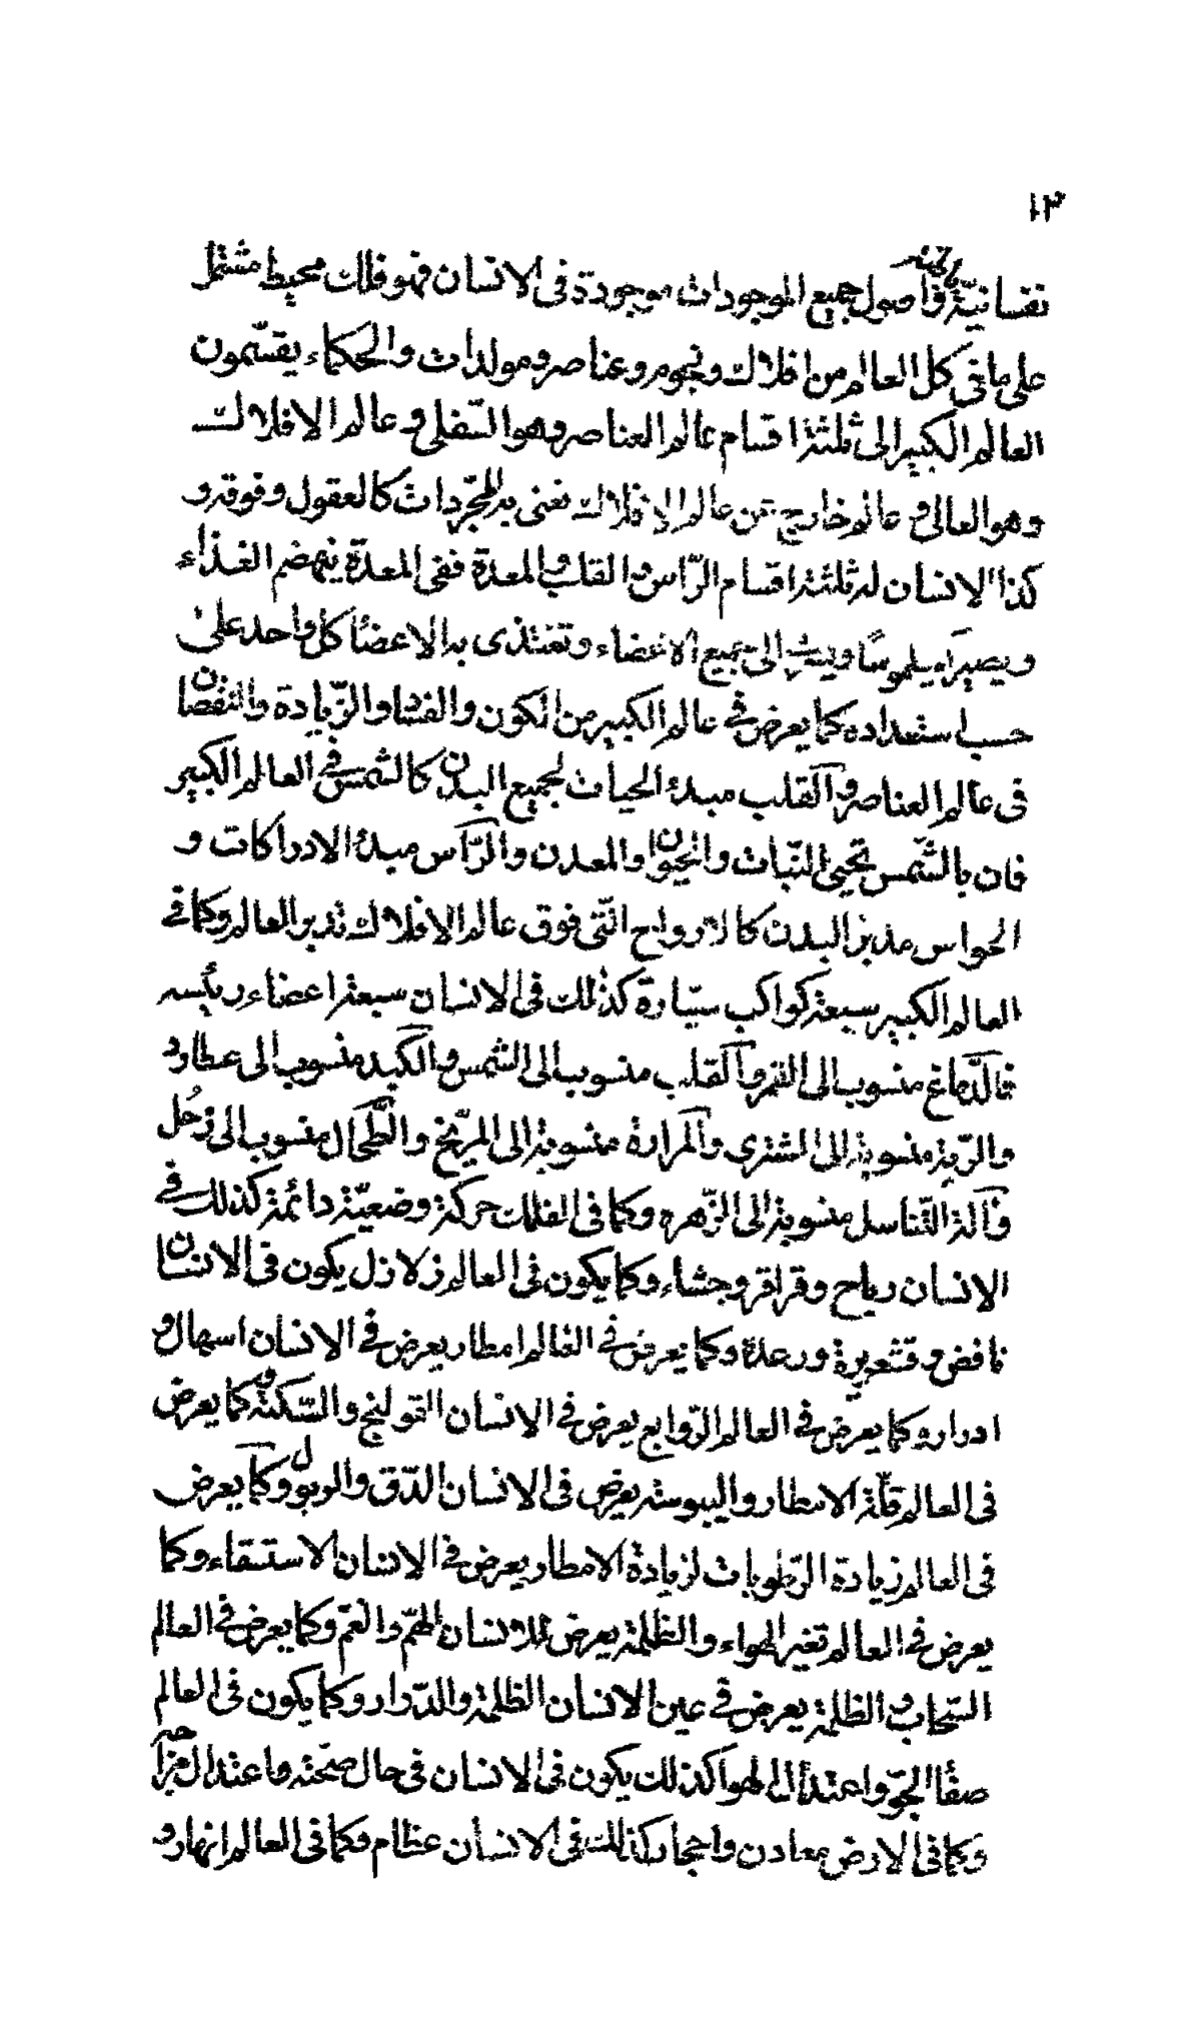 ١٣
نفسانيّة و اصول جميع الموجودات موجودة فى الانسان فهو فلك محيط مشتمل
على ما فى كل العالم من افلاك و نجوم و عناصر و مولدات والحكماء يقسّمون
العالم الكبير الى ثلثة اقسام عالم العناصر وهو السّفلى و عالم الافلاك
وهو العالى و عالم خارج عن عالم الافلاك نعنى به المجرّدات كالعقول و فوقه و
كذا الانسان له ثلثة اقسام الرّاس و القلب و المعدة ففى المعدة ينهضم الغذاء
و يصير كيلموسًا و الى جميع الاعضاء و تغتذى به الاعضاء كل واحد على
حسب استعداده كما يعرض فى عالم الكبير من الكون والفساد والزّيادة والنقصان
فى عالم العناصر و القلب مبدء الحيات لجميع البدن كالشمس فى العالم الكبير
فان بالشّمس تحيى النّبات والحيوان والمعدن والرّاس مبدء الادراكات و
الحواس مدبر البدن كالارواح الّتى فوق عالم الافلاك تدبر العالم وكما فى
العالم الكبير سبعة كواكب سيّارة كذلك فى الانسان سبعة اعضاء رئيسه
فالدّماغ منسوب الى القمر و القلب منسوب الى الشمس و الكبد منسوب الى عطارد
والرّية منسوبة الى المشترى والمرارة منسوبة الى المرّيخ والطّحال منسوب الى زحُل
و آلة التّناسل منسوبة الى الزّهره وكما فى الفلك حركة وضعيّة دائمة كذلك فى
الانسان رياح و قراقر و جشاء وكما يكون فى العالم زلازل يكون فى الانسان
نافض و قشعريرة و رعدة وكما يعرض فى العالم امطار يعرض فى الانسان اسهال و
ادرار وكما يعرض فى العالم الزّوابع يعرض فى الانسان القولنج والسّكته و كما يعرض
فى العالم قلّة الامطار واليبوسة يعرض فى الانسان الدّق والذبول وكما يعرض
فى العالم زيادة الرّطوبات لزيادة الامطار يعرض فى الانسان الاستسقاء وكما
يعرض فى العالم تغير الهواء والظلمة يعرض للانسان الهمّ والغمّ وكما يعرض فى العالم
السّحاب و الظلمة يعرض فى عين الانسان الظلمة والدّوار وكما يكون فى العالم
صفاء الجوّ و اعتدال الهوا كذلك يكون فى الانسان فى حال صحّته و اعتدال مزاجه
وكما فى الارض معادن و احجار كذلك فى الانسان عظام وكما فى العالم انهار و